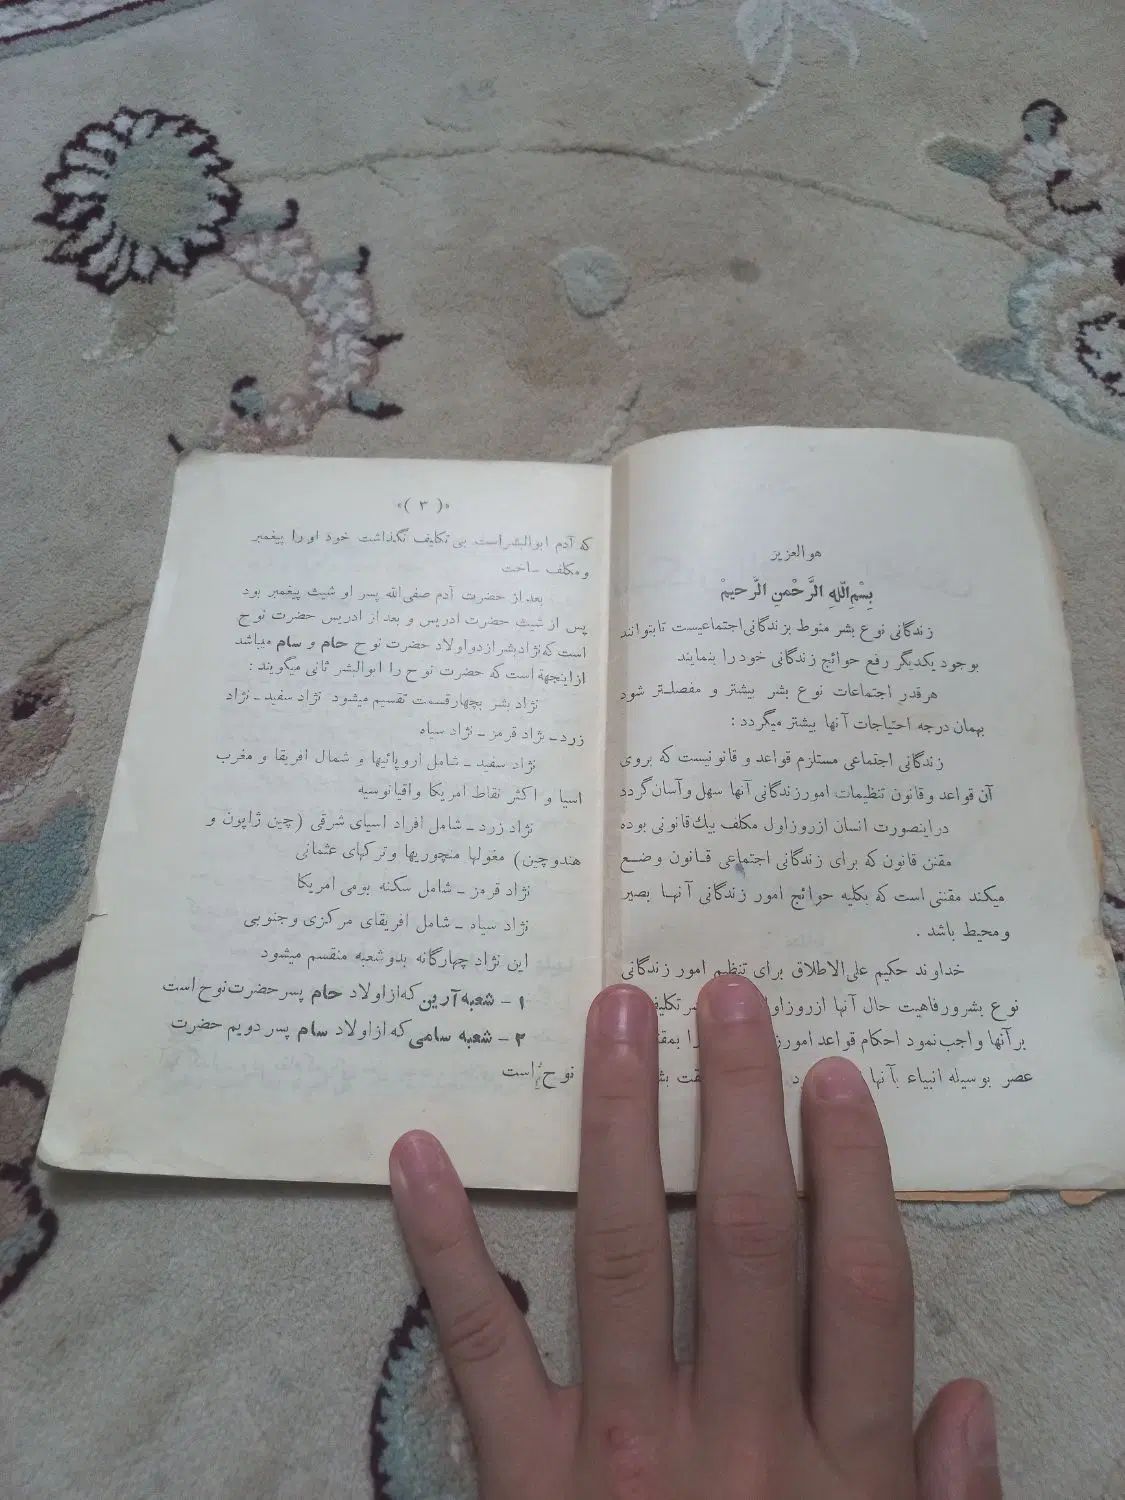 هو العزیز
بِسْمِ اللّهِ الرَّحْمنِ الرَّحیمْ
زندگانی نوع بشر منوط بزندگانی اجتماعیست تا بتوانند
بوجود یکدیگر رفع حوائج زندگانی خود را بنمایند
هر قدر اجتماعات نوع بشر بیشتر و مفصلتر شود
بهمان درجه احتیاجات آنها بیشتر میگردد :
زندگانی اجتماعی مستلزم قواعد و قانونیست که بروی
آن قواعد و قانون تنظیمات امور زندگانی آنها سهل و آسان گردد
در اینصورت انسان از روز اول مکلف بیك قانونی بوده
مقنن قانون که برای زندگانی اجتماعی قانون وضع
میکند مقننی است که بکلیه حوائج امور زندگانی آنها بصیر
و محیط باشد .
خداوند حکیم علی الاطلاق برای تنظیم امور زندگانی
نوع بشر و رفاهیت حال آنها از روز اول تکلیف
بر آنها واجب نمود احکام قواعد امور را
عصر بوسیله انبیاء بآنها
«( ۳ )»
که آدم ابوالبشر است بی تکلیف نگذاشت خود او را پیغمبر
و مکلف ساخت
بعد از حضرت آدم صفی الله پسر او شیث پیغمبر بود
پس از شیث حضرت ادریس و بعد از ادریس حضرت نوح
است که نژاد بشر از دو اولاد حضرت نوح حام و سام میباشد
از اینجهة است که حضرت نوح را ابوالبشر ثانی میگویند :
نژاد بشر بچهار قسمت تقسیم میشود نژاد سفید ـ نژاد
زرد ـ نژاد قرمز ـ نژاد سیاه
نژاد سفید ـ شامل اروپائیها و شمال افریقا و مغرب
اسیا و اکثر نقاط امریکا و اقیانوسیه
نژاد زرد ـ شامل افراد اسیای شرقی (چین ژاپون و
هندوچین) مغولها منچوریها و ترکهای عثمانی
نژاد قرمز ـ شامل سکنه بومی امریکا
نژاد سیاه ـ شامل افریقای مرکزی و جنوبی
این نژاد چهارگانه بدو شعبه منقسم میشود
۱ - شعبه آرین که از اولاد حام پسر حضرت نوح است
۲ - شعبه سامی که از اولاد سام پسر دویم حضرت
نوح است